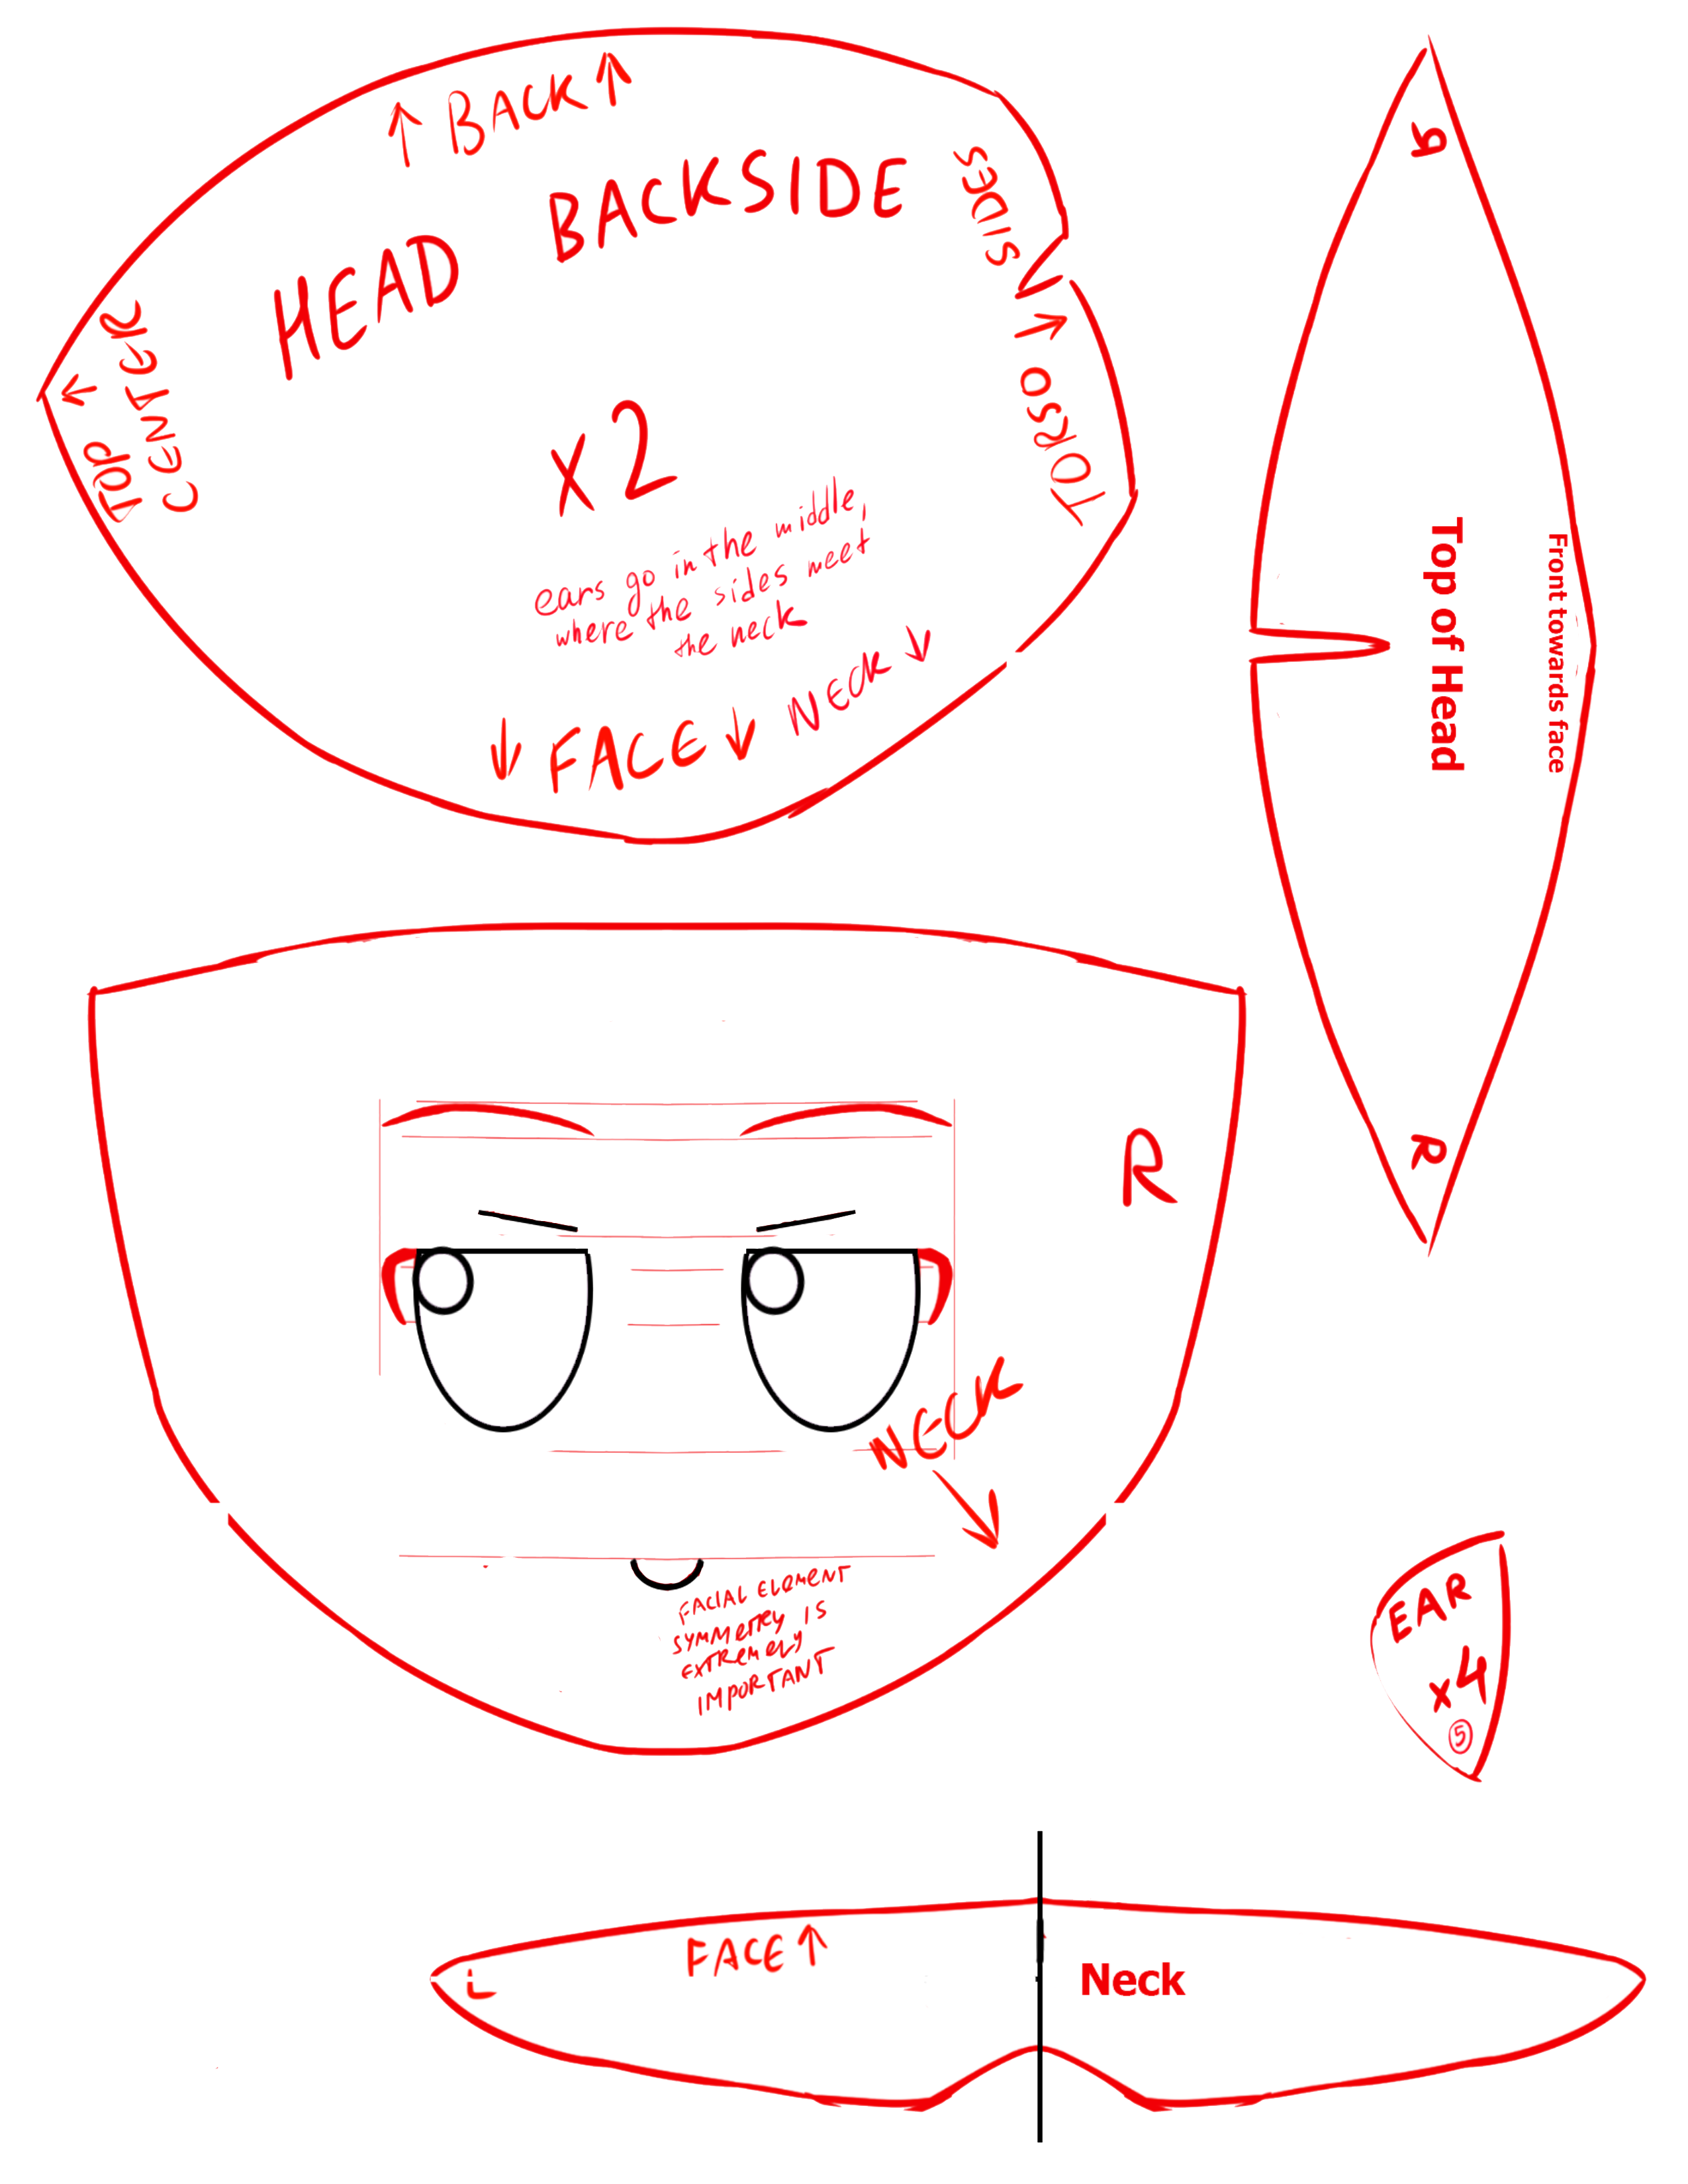 ↑ BACK ↑
HEAD BACKSIDE
SIDES
TORSO ↑
TOP ↑
CENTER
x2
ears go in the middle,
where the sides meet
the neck
↓ FACE ↓ NECK ↓
R
Top of Head
Front towards face
R
R
NECK
FACIAL ELEMENT
SYMMETRY IS
EXTREMELY
IMPORTANT
EAR
x4
⑤
FACE ↑
L
Neck